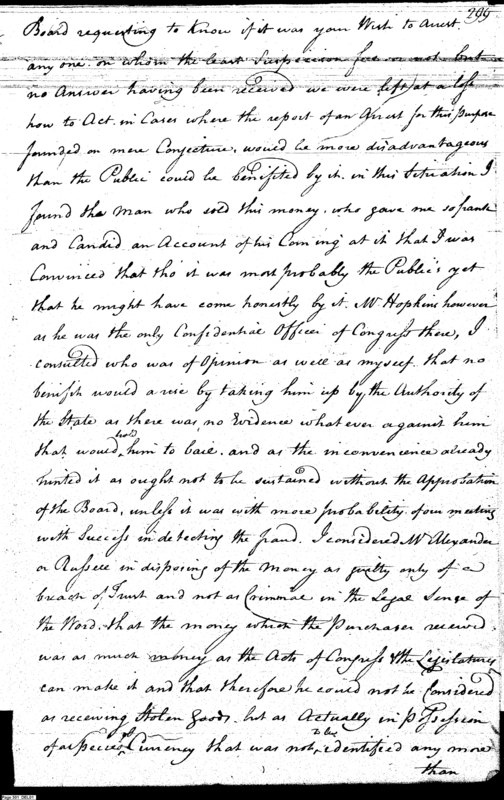 299
Board requesting to know if it was your Wish to Arrest
any one on whom the least Suspecion fee or not but
no Answer having been received we were left at a loss
how to Act in Cases where the report of an Arrest for this purpose
founded on mere Conjecture, would be more disadvantageous
than the Public could be benifited by it. in this Situation I
found the man who sold this money, who gave me so frank
and Candid an Account of his Coming at it that I was
Convinced that tho' it was most probably the Public's yet
that he might have come honestly by it. Mr Hopkins however
as he was the only Confidential Officer of Congress there, I
consulted who was of Opinion as well as myself that no
benifit would arise by taking him up by the Authority of
the State as there was no Evidence what ever against him
that would hold him to bail. and as the inconvenience already
hinted it as ought not to be sustained without the Approbation
of the Board, unless it was with more probability of our meeting
with Success in detecting the fraud. I considered Mr Alexander
or Russell in disposing of the Money as guilty only of a
breach of Trust and not as Criminal in the Legal Sense of
the Word. that the money which the purchaser received
was as much money as the Acts of Congress & the Legislatures
can make it and that therefore he could not be Considered
as receiving Stolen goods. but as Actually in Possession
of a Specie of Currency that was not identified any more
than